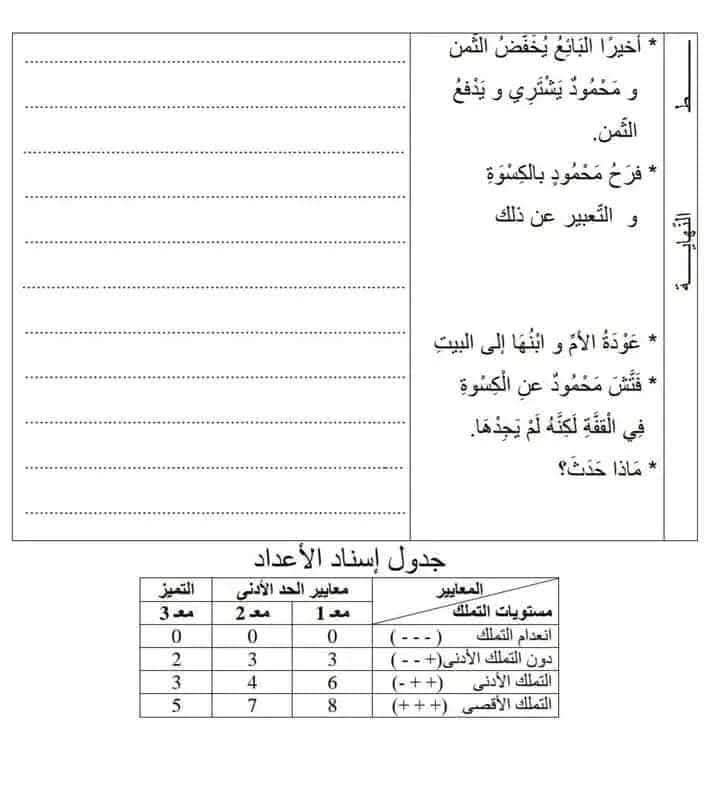 ـط
* أخيرًا الْبَائِعُ يُخَفِّضُ الثَّمن
و مَحْمُودٌ يَشْتَرِي و يَدْفعُ
الثَّمن.
* فرَحُ مَحْمُودٍ بالكِسْوَةِ
و التَّعبير عن ذلك
النّهايـــة
* عَوْدَةُ الأمِّ و ابْنُهَا إلى البيتِ
* فَتَّشَ مَحْمُودٌ عنِ الْكِسْوةِ
فِي الْقفَّةِ لَكِنَّهُ لَمْ يَجِدْهَا.
* مَاذا حَدَثَ؟
جدول إسناد الأعداد
المعايير معايير الحد الأدنى التميز
مستويات التملك معـ 1 معـ 2 معـ 3
انعدام التملك (- - -) 0 0 0
دون التملك الأدنى(+ - -) 3 3 2
التملك الأدنى (+ + -) 6 4 3
التملك الأقصى (+ + +) 8 7 5